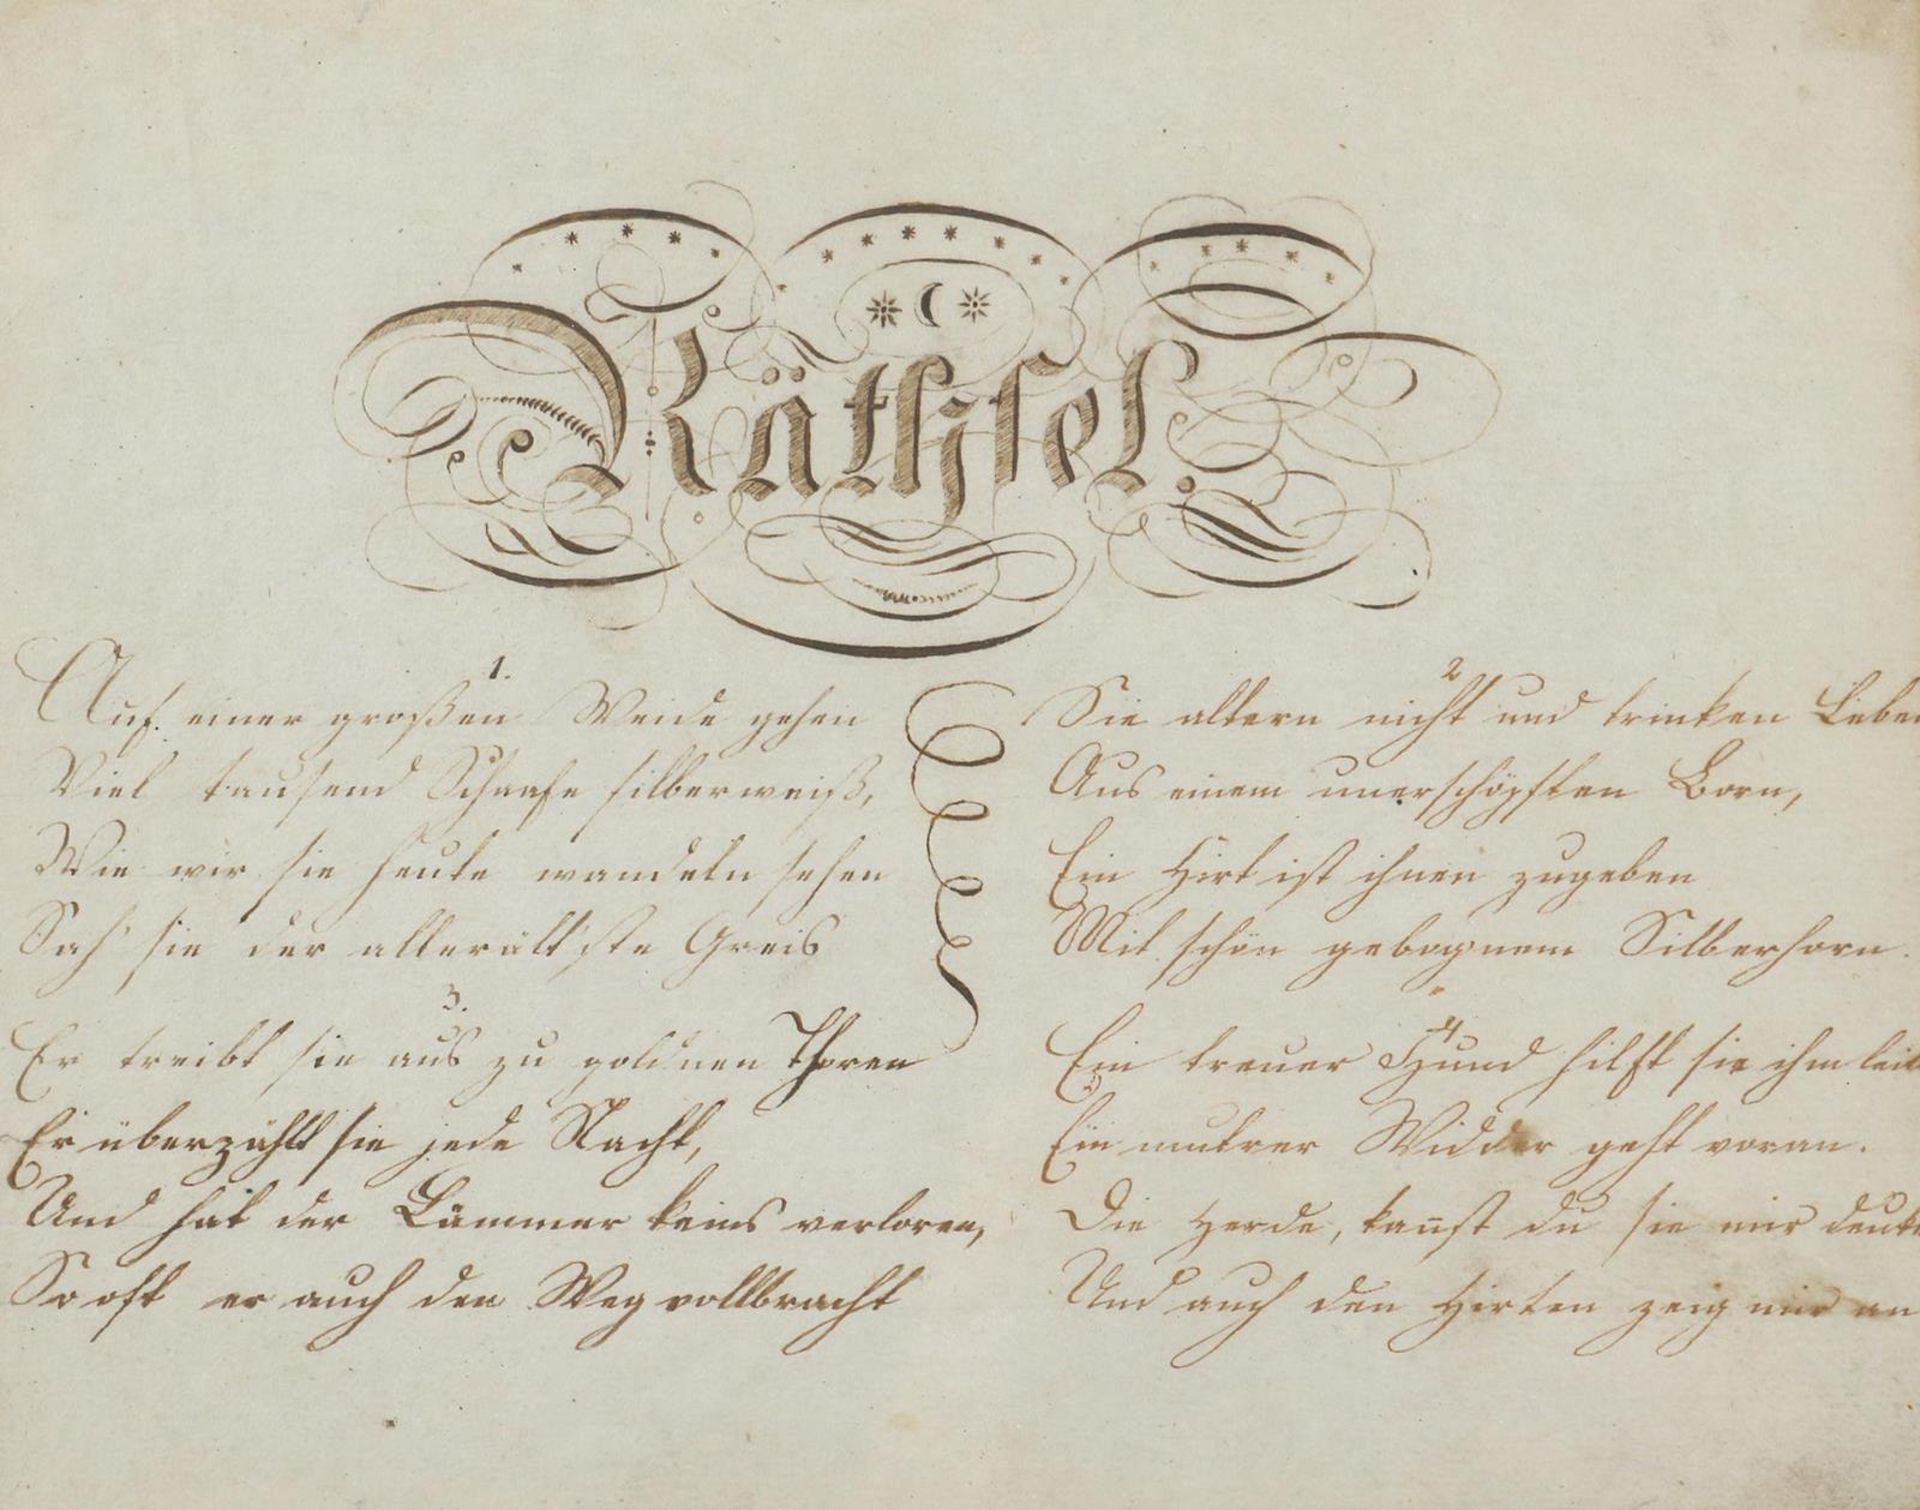 Räthsel.
1.
Auf einer großen Weide gehen
Viel tausend Schaafe silberweiß,
Wie wir sie heute wandeln sehen
Sah' sie der allerält'ste Greis
2
Sie altern nicht und trinken Leben
Aus einem unerschöpften Born,
Ein Hirt ist ihnen zugeben
Mit schön gebognem Silberhorn.
3.
Er treibt sie aus zu goldnen Thoren
Er überzählt sie jede Nacht,
Und hat der Lämmer keins verloren,
So oft er auch den Weg vollbracht
4
Ein treuer Hund hilft sie ihm leit
Ein muntrer Widder geht voran.
Die Herde, kannst du sie mir deute
Und auch den Hirten zeig mir an